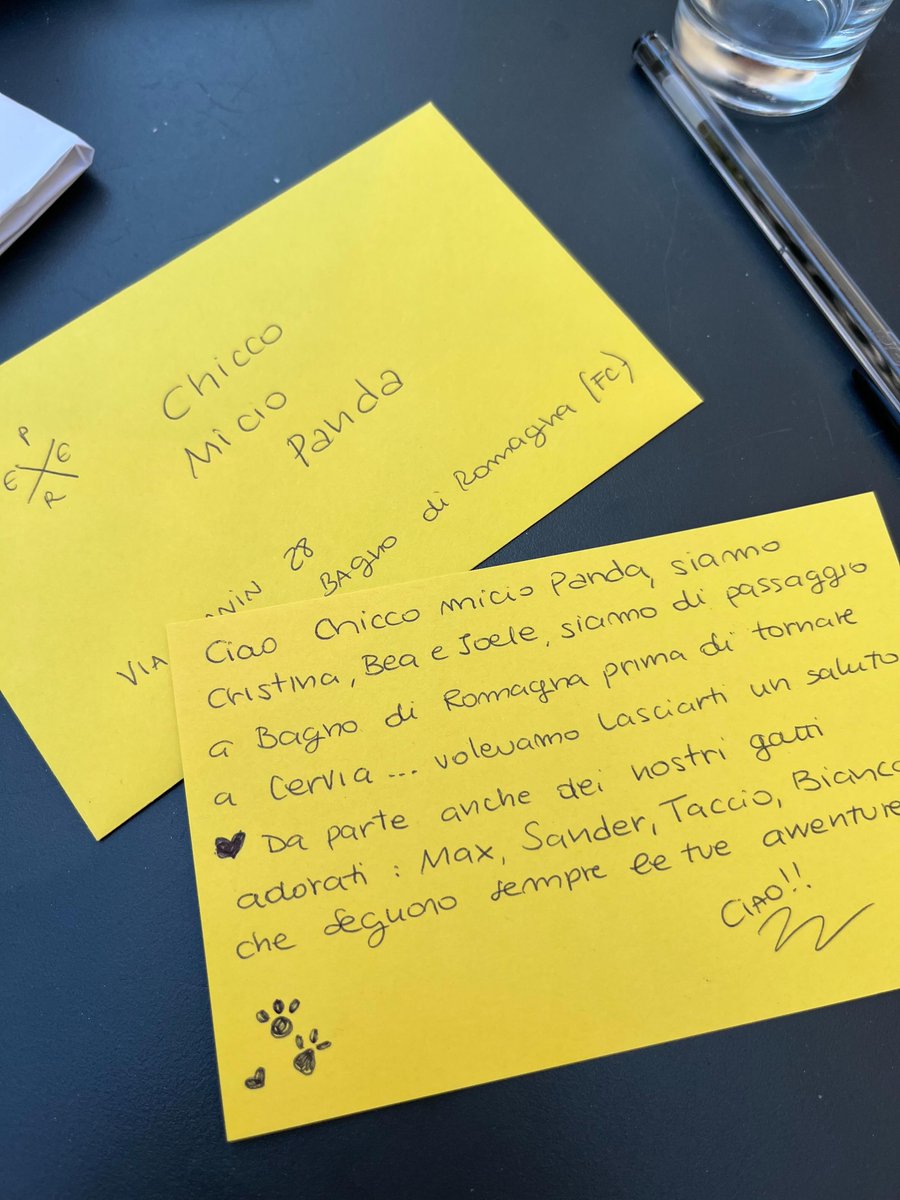 P
E E
R
Chicco
Micio
Panda
VIA 28
Bagno di Romagna (FC)
Ciao Chicco micio Panda, siamo
Cristina, Bea e Joele, siamo di passaggio
a Bagno di Romagna prima di tornare
a Cervia... volevamo lasciarti un saluto
Da parte anche dei nostri gatti
adorati : Max, Sander, Taccio, Bianca
che seguono sempre le tue avventure
CIAO!!